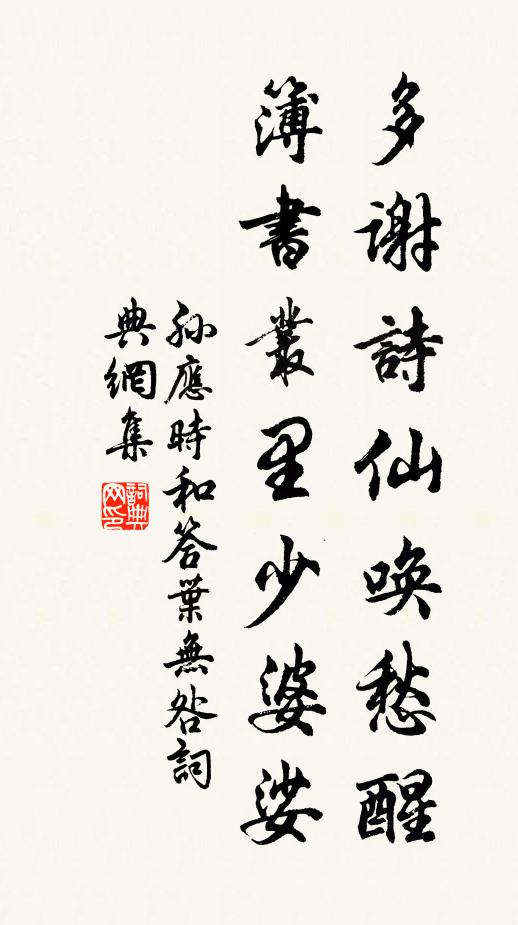 多謝詩仙喚愁醒
簿書叢里少婆娑
孙應時和答葉無咎詞
典網集
詞典
网印